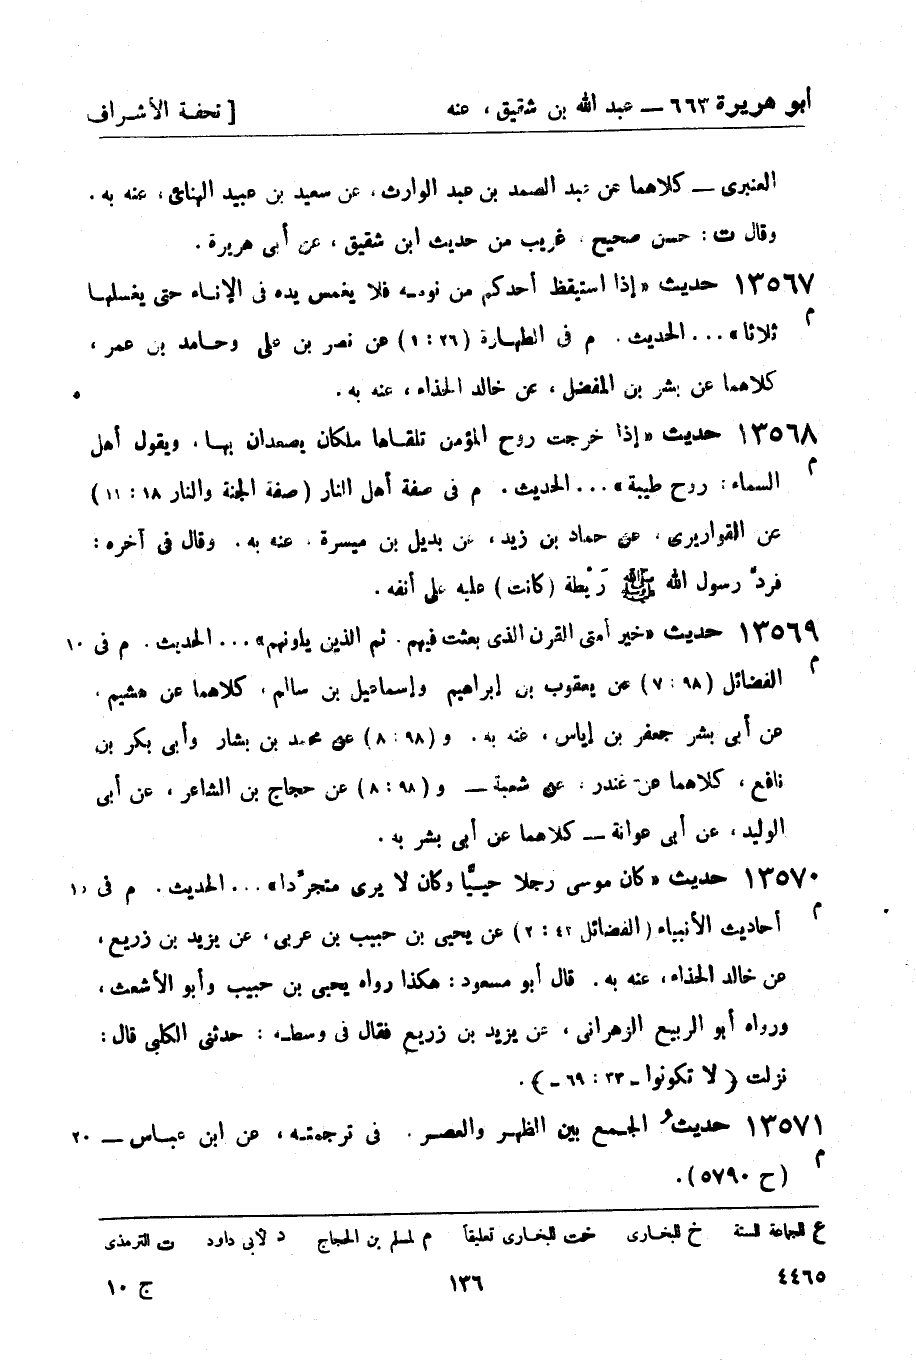 أبو هريرة ٦٦٣ — عبد الله بن شقيق ، عنه [ تحفة الأشراف
العنبرى — كلاهما عن عبد الصمد بن عبد الوارث ، عن سعيد بن عبيد الهنائى ، عنه به .
وقال ت : حسن صحيح غريب من حديث ابن شقيق ، عن أبى هريرة .
١٣٥٦٧ حديث «إذا استيقظ أحدكم من نومه فلا يغمس يده فى الإناء حتى يغسلها
م ثلاثا» ... الحديث . م فى الطهارة (٢٦ : ١) عن نصر بن على وحامد بن عمر ،
كلاهما عن بشر بن المفضل ، عن خالد الحذاء ، عنه به . ٥
١٣٥٦٨ حديث «إذا خرجت روح المؤمن تلقاها ملكان يصعدان بها ، ويقول أهل
م السماء : روح طيبة» ... الحديث . م فى صفة أهل النار (صفة الجنة والنار ١٨ : ١١)
عن القواريرى ، عن حماد بن زيد ، عن بديل بن ميسرة ، عنه به . وقال فى آخره :
فردَّ رسول الله ﷺ رَيْطة (كانت) عليه على أنفه .
١٣٥٦٩ حديث «خير أمتى القرن الذى بعثت فيهم . ثم الذين يلونهم» ... الحديث . م فى ١٠
م الفضائل (٩٨ : ٧) عن يعقوب بن إبراهيم وإسماعيل بن سالم ، كلاهما عن هشيم ،
عن أبى بشر جعفر بن إياس ، عنه به . و (٩٨ : ٨) عن محمد بن بشار وأبى بكر بن
نافع ، كلاهما عن غندر ، عن شعبة — و (٩٨ : ٨) عن حجاج بن الشاعر ، عن أبى
الوليد ، عن أبى عوانة — كلاهما عن أبى بشر به .
١٣٥٧٠ حديث «كان موسى رجلا حييًّا وكان لا يرى متجرِّدا» ... الحديث . م فى ١٥
م أحاديث الأنبياء (الفضائل ٤٢ : ٢) عن يحيى بن حبيب بن عربى ، عن يزيد بن زريع ،
عن خالد الحذاء ، عنه به . قال أبو مسعود : هكذا رواه يحيى بن حبيب وأبو الأشعث ،
ورواه أبو الربيع الزهرانى ، عن يزيد بن زريع فقال فى وسطه : حدثنى الكلبى قال :
نزلت ﴿ لا تكونوا ـ ٣٣ : ٦٩ ـ ﴾ .
١٣٥٧١ حديثُ الجمع بين الظهر والعصر . فى ترجمته ، عن ابن عباس — ٢٠
م (ح ٥٧٩٠) .
ع للجماعة الستة خ للبخارى خت للبخارى تعليقاً م لمسلم بن الحجاج د لأبى داود ت للترمذى
٤٤٦٥ ١٣٦ ج ١٠